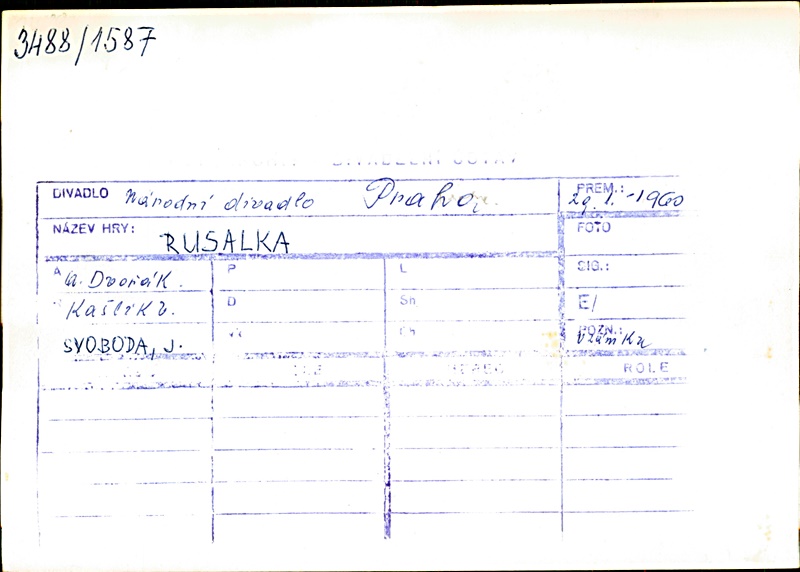 3488/1587
DIVADLO Národní divadlo Praha PREM.: 29. 1. -1960
NÁZEV HRY: RUSALKA FOTO
A A. Dvořák. P L SIG.:
Kašlík V. D Sh E/
SVOBODA, J. Ch POZN.:
ROLE